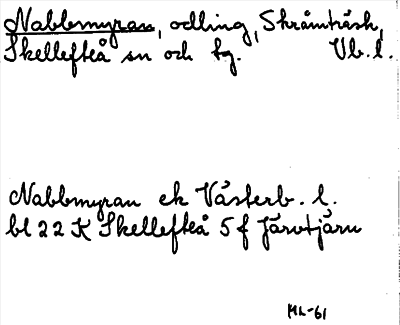 Nabbmyran, odling, Skråmträsk,
Skellefteå sn och tg. Vb. l.
Nabbmyran ek Västerb. l.
bl 22 K Skellefteå 5 f Järvtjärn
ML-61